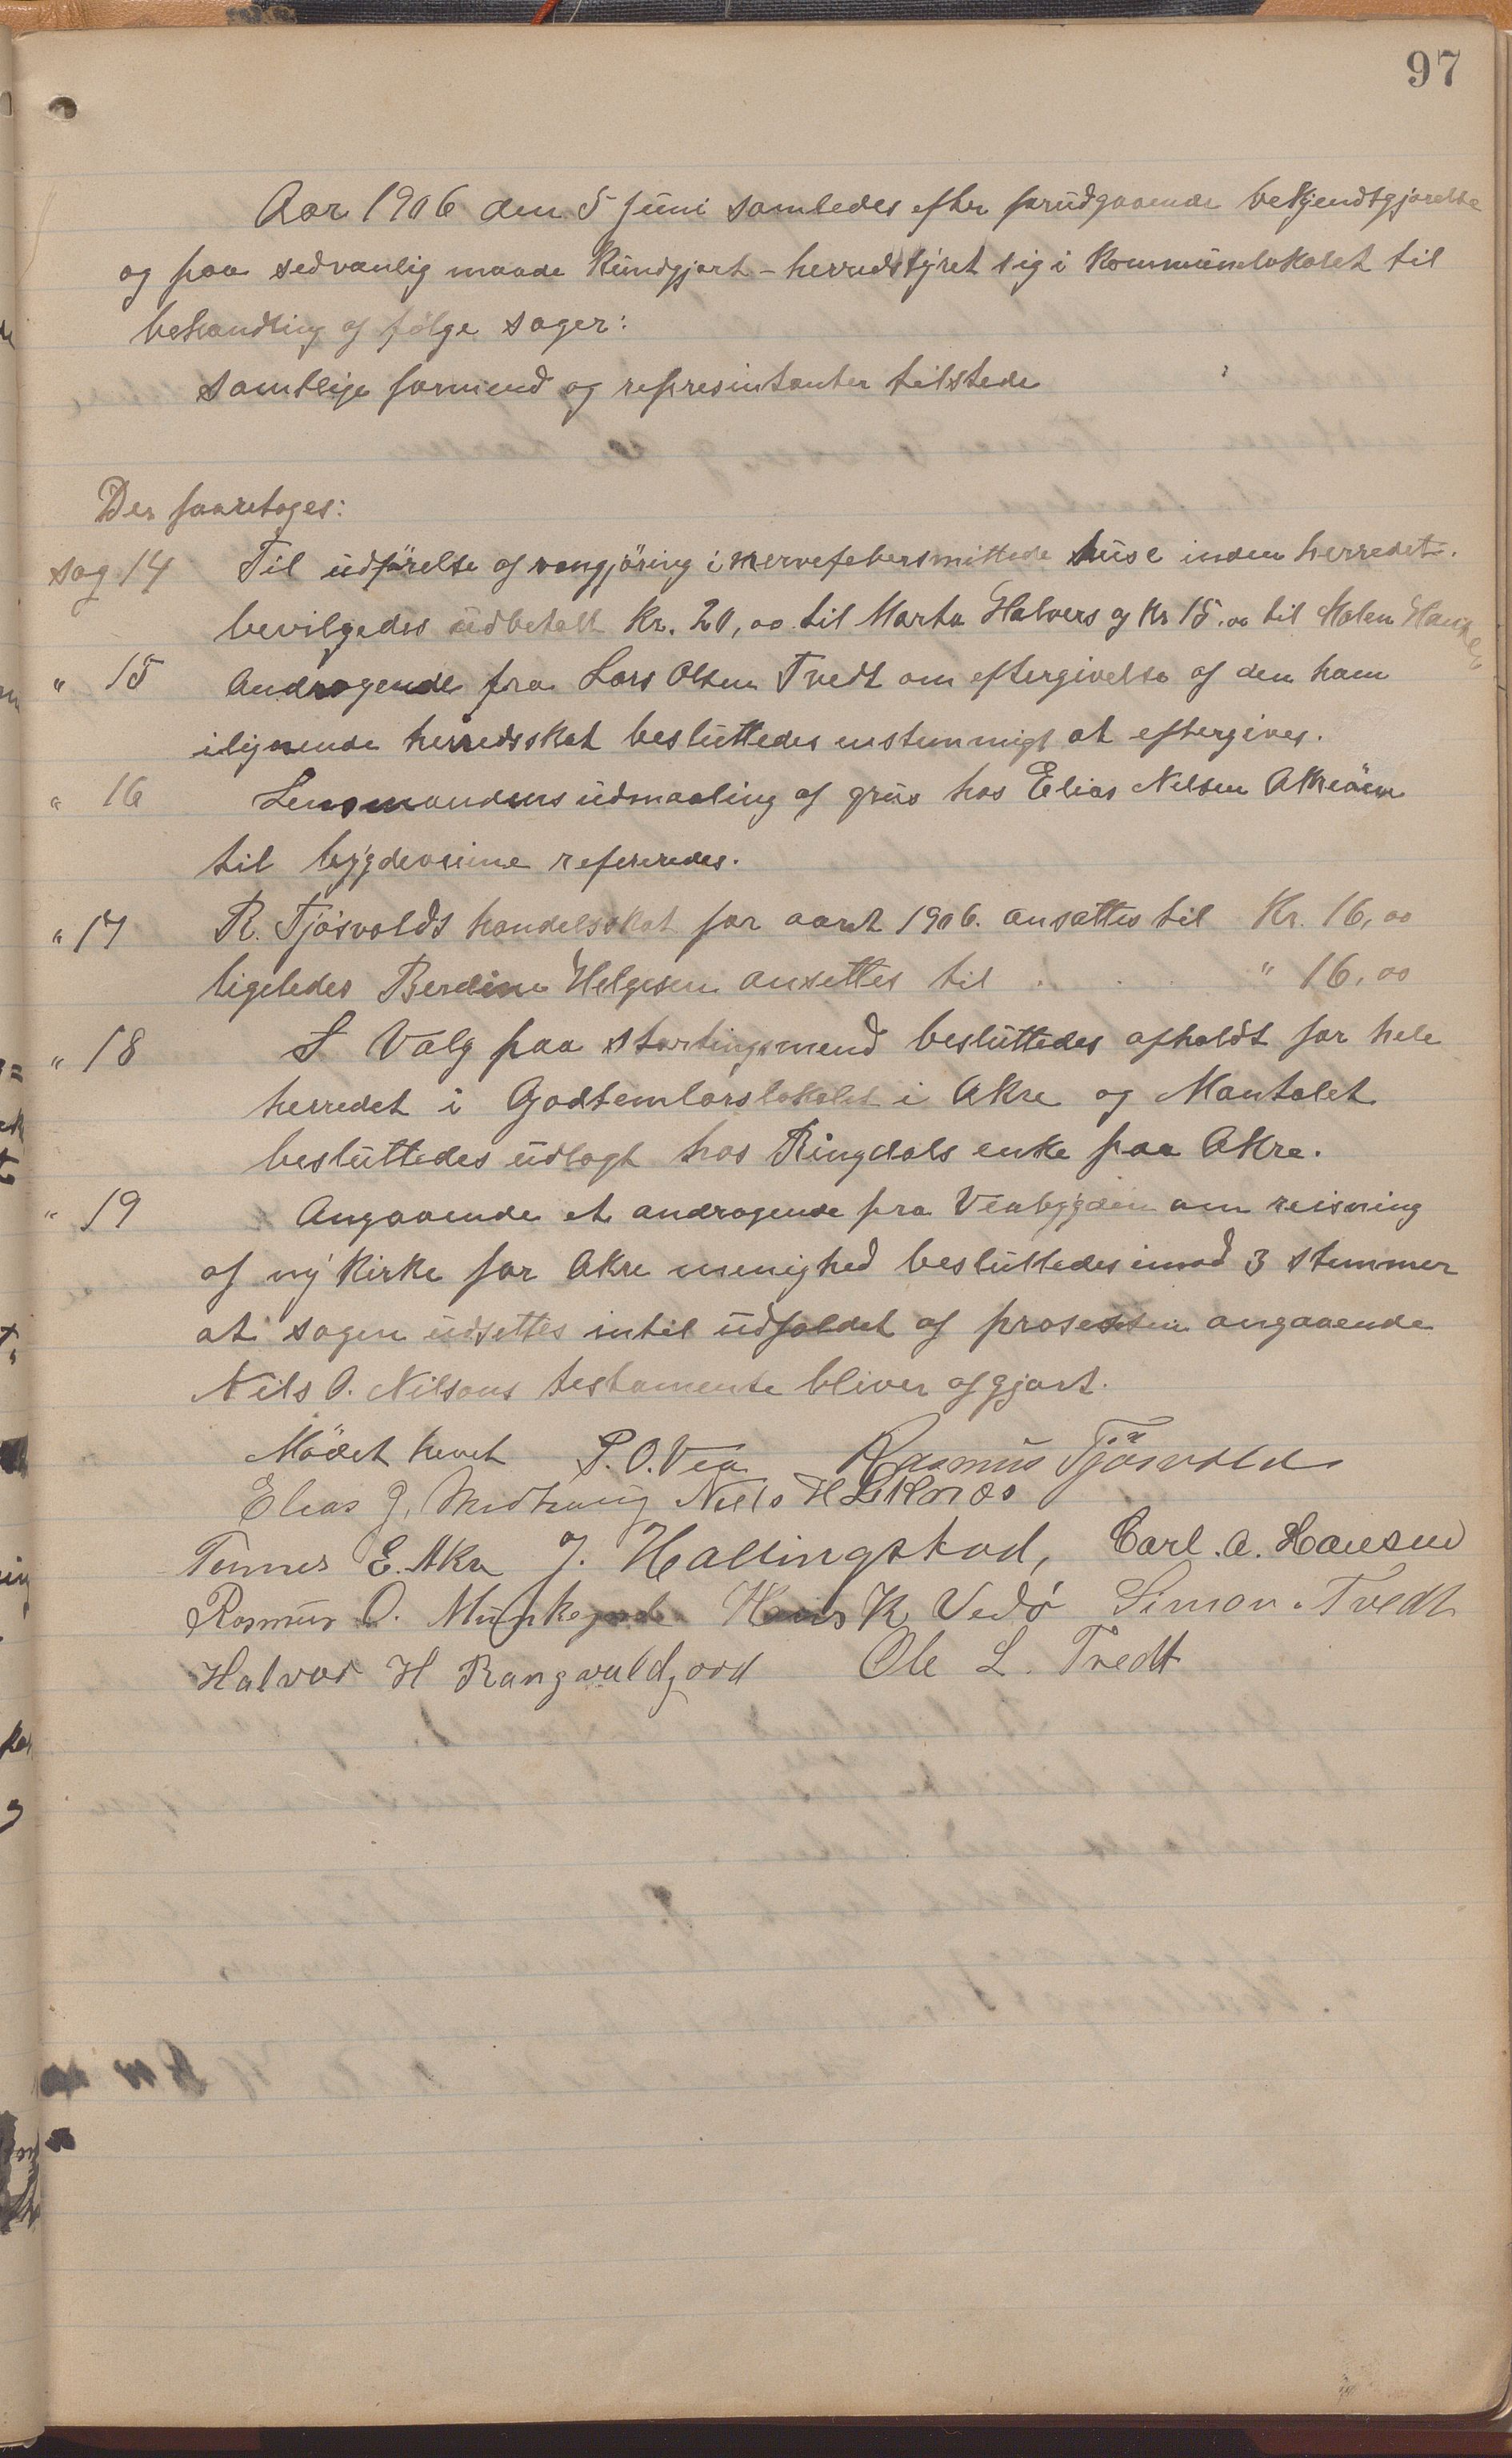 97
Aar 1906 den 5 juni samledes efter forudgaaende bekjendtgjørelse
og paa sedvanlig maade kundgjort - herredstyret sig i kommunelokalet til
behandling af følge sager:
samtlige formend og represintanter tilstede
Der foaretoges:
sag 14 Til udførelse af rengjøring i nervefebersmittede huse inden herredet.
bevilgedes udbetalt Kr. 20,00 til Marta Halvors og Kr 15.00 til Malen
" 15 Andragende fra Lars Olsen Tvedt om eftergivelse af den ham
ilignende herredsskat besluttedes enstemmigt at eftergives.
" 16 Lensmandens udmaaling af grus hos Elias Nilsen
til bygdeveiene refereredes.
" 17 R. Tjøsvolds handelsskat for aaret 1906. ansattes til Kr. 16,00
ligeledes Berdine Helgesen ansettes til . . . " 16,00
" 18 Valg paa stortingsmend besluttedes afholdt for hele
herredet i Godtemlarslokalet i Akre og Mantalet
besluttedes udlagt hos Ringdals enke paa Akre.
" 19 Angaaende et andragende fra Veabygden om reisning
af ny kirke for Akre menighed besluttedes imod 3 stemmer
at sagen udsettes intil udfaldet af prosessen angaaende
Nils O. Nilsons testamente bliver afgjort.
Mødet hevet P. O. Vea Rasmus Tjøsvold
Elias J. Medhaug Niels H Liknæs
Tønnes E. Akra J. Hallingstad, Carl. A. Hansen
Rasmus O. Munkejord Hans K Vedø Simon Tvedt
Halvor H Rangvaldjord Ole L. Tvedt